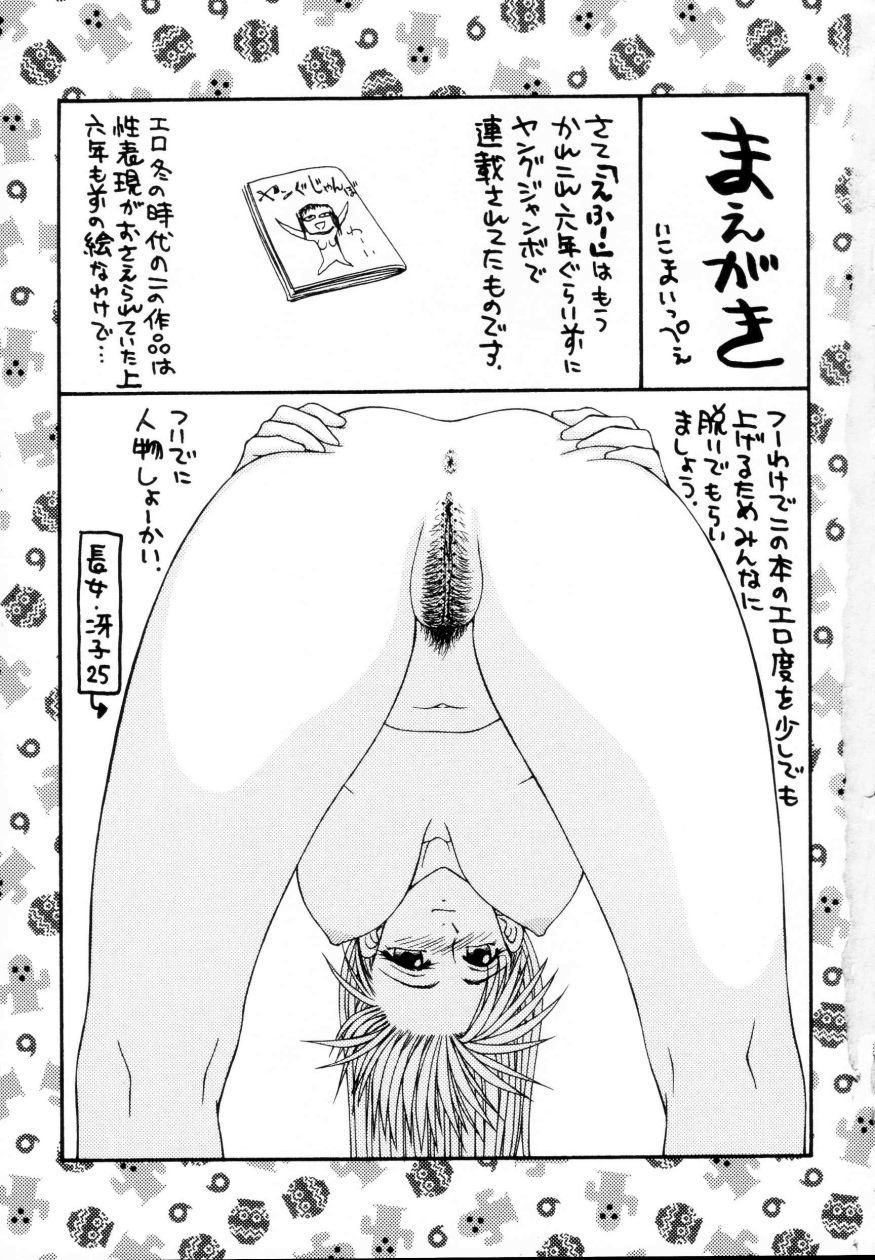 まえがき
いこまいっぺぇ
さて「えふー！」はもう
かれこれ六年ぐらい前に
ヤングジャンボで
連載されてたものです.
ヤングじゃんぼ
わーい
エロ冬の時代のこの作品は
性表現がおさえられていた上
六年も前の絵なわけで…
つーわけでこの本のエロ度を少しでも
上げるためみんなに
脱いでもらい
ましょう.
ついでに
人物しょーかい.
長女・冴子25